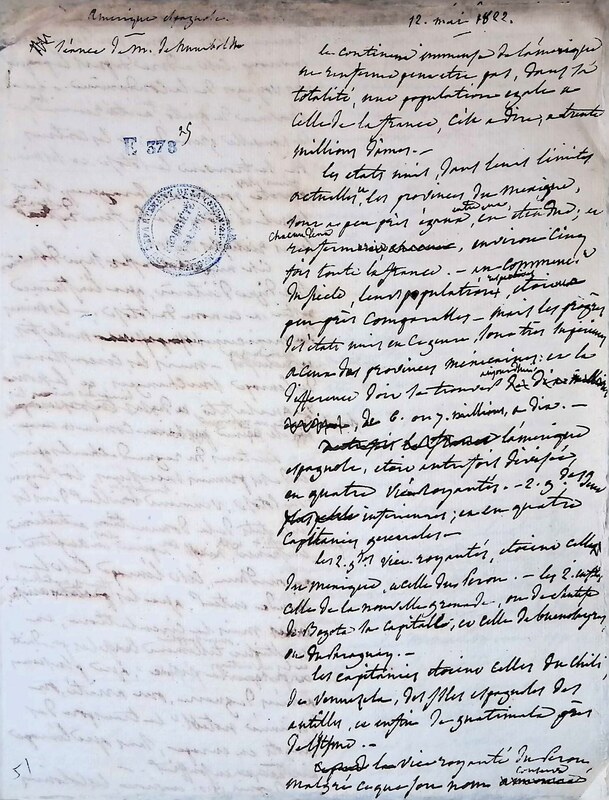 Amérique espagnole.
12. mai 1822.
Séance de M. de humboldt
E 378 25
le continent immense de lamérique
ne renferme peut etre pas, dans sa
totalité, une population egale a
celle de la france, cest a dire, a trente
millions dames. —
les etats unis, dans leurs limites
actuelles, les provinces du mexique,
sont a peu près egaux, en etendue; et
chacun deux
renferment, environ cinq
fois toute la france. — au commencé
du siecle, leurs populations, etoient
peu près comparables — mais les progrès
des etats unis en ce genre sont très superieurs
a ceux des provinces mexicaines: et la
difference doit se trouver aujourdhui
de 6. ou 7. millions, a dix. —
lamérique
espagnole, etoit autrefois divisée
en quatre vice royautés. — 2. gdes
inferieures; et en quatre
capitainies generales —
les 2. gdes vice royautés, etoient celles
du mexique, et celle du Perou. — les 2. autres
celle de la nouvelle grenade, ou de Santafé
de Bogota sa capitalle, et celle de buenos ayres
ou du Paraguay. —
les capitainies etoient celles du chili,
de vennezuela, des isles espagnoles des
antilles, et enfin de guatimala près
de listme. —
la vice royauté du Perou
malgré ce que son nom
51